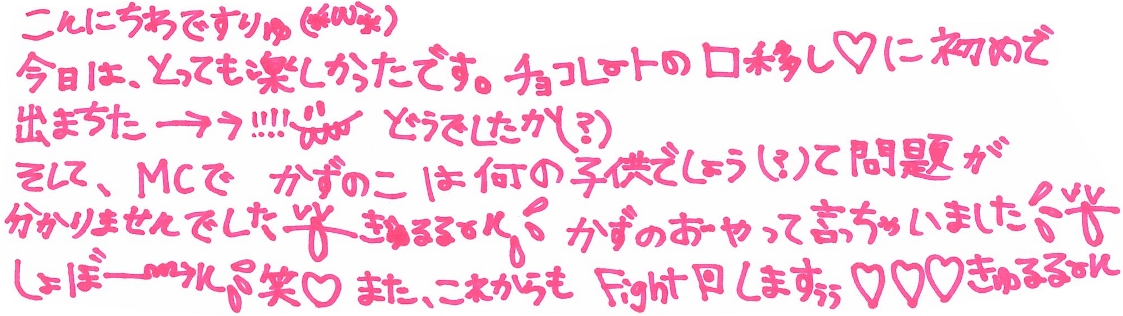 こんにちわですりゅ(*ω*)
今日は、とっても楽しかったです。チョコレートの口移し♡に初めで
出まちた→→!!!! どうでしたか(?)
そして、MCで かずのこ は何の子供でしょう(?)て問題が
分かりませんでした きゅるるーん かずのおやって言っちゃいました
しょぼーん 笑♡ また、これからも Fight回します ♡♡♡きゅるるーん